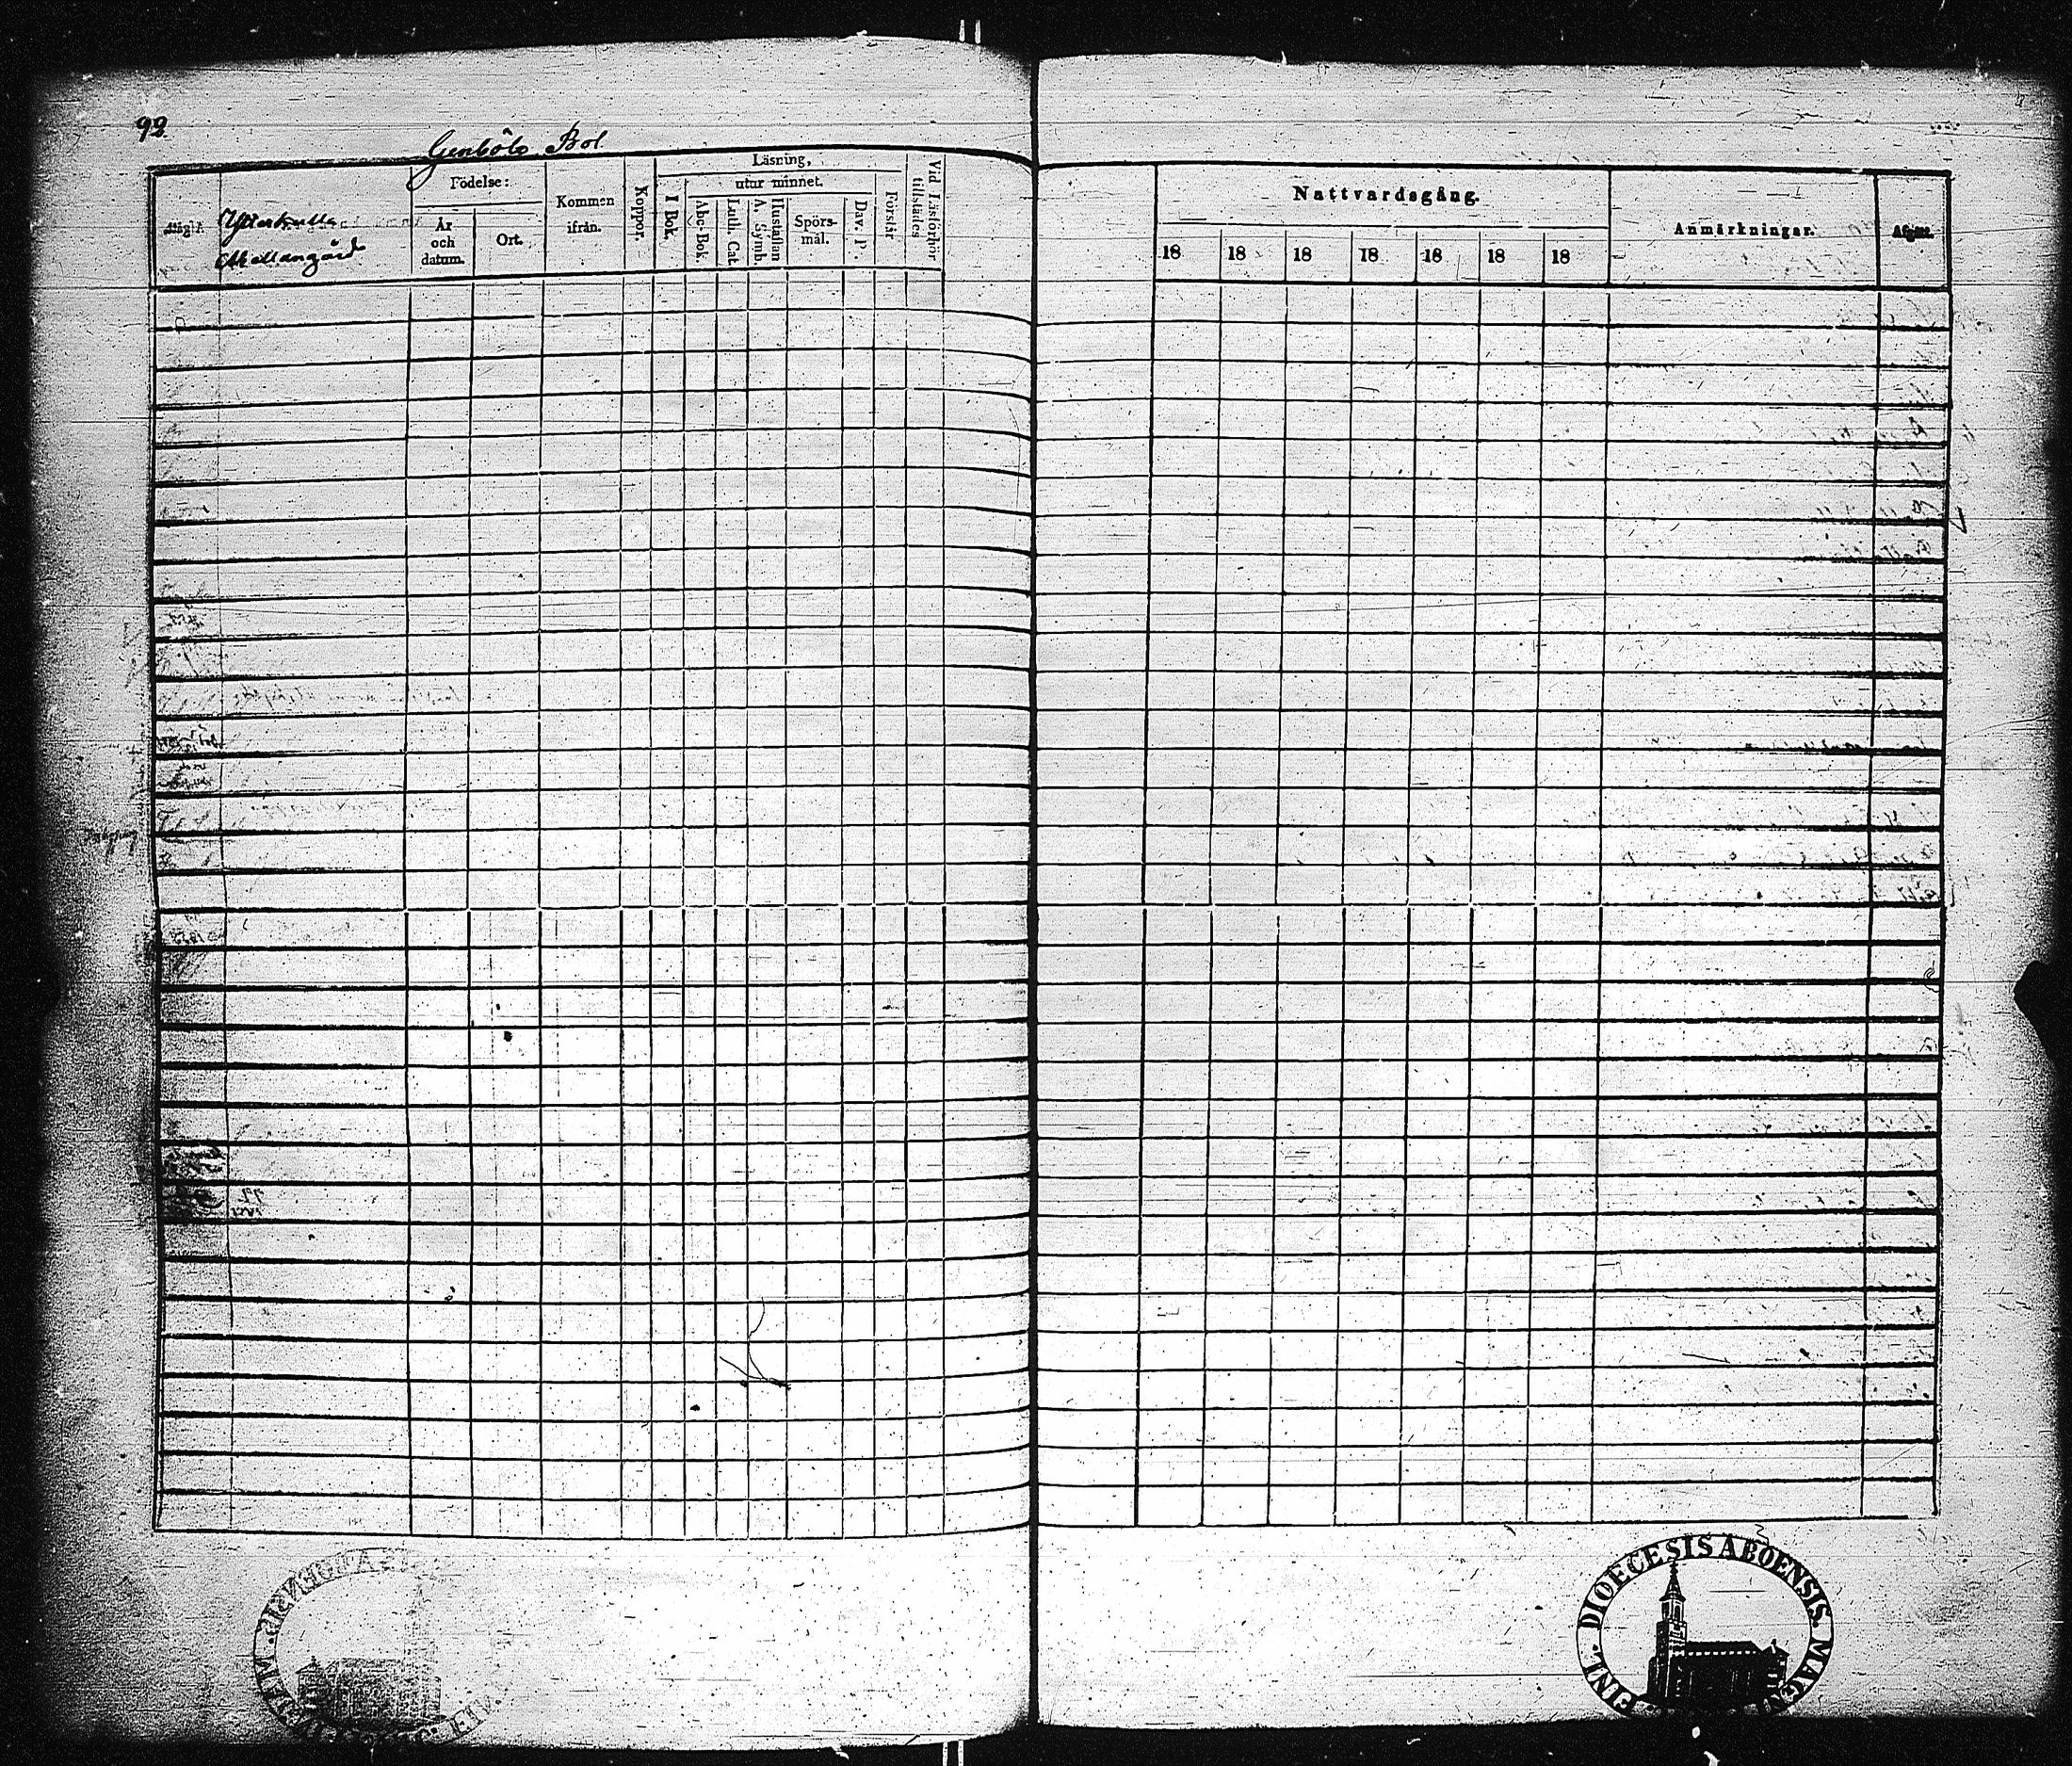 92
Genböle Bol.
Mellangård
Födelse:
År och datum.
Ort.
Kommen ifrån.
Koppor.
Läsning,
I Bok.
utur minnet.
Abc-Bok
Luth. Cat.
Hustaflan A. Symb.
Spörsmål.
Dav. P.
Förstår
Vid Läsförhör tillstädes
Nattvardsgång.
18 18 18 18 18 18 18
Anmärkningar.
DIOECESIS ABOENSIS.